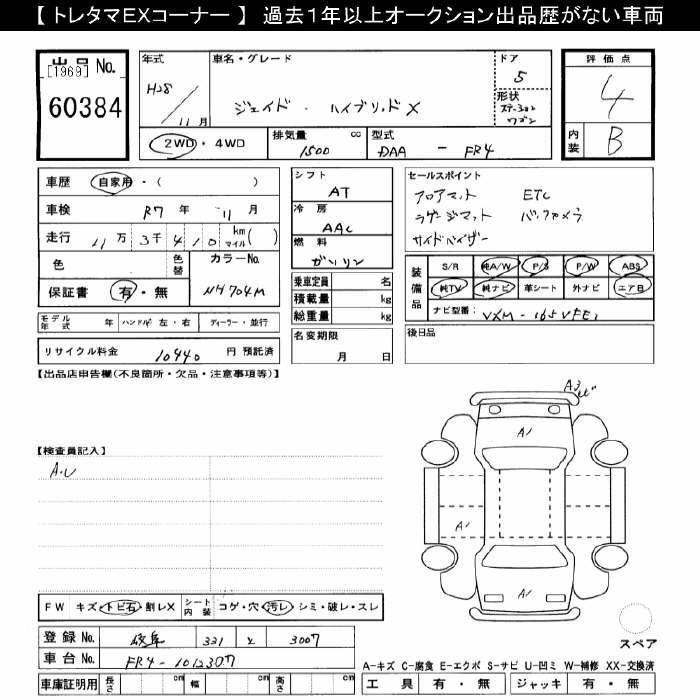 【 トレタマEXコーナー 】 過去1年以上オークション出品歴がない車両
出品 No.
[1969]
60384
年式
H28 / 11 月
車名・グレード
ジェイド・ハイブリッドX
ドア
5
形状
ステーションワゴン
評価点
4
内装
B
2WD・4WD
排気量 cc
1500
型式
DAA - FR4
車歴 自家用・( )
車検 R7 年 11 月
走行 11 万 3 千 4 1 0 km マイル ( )
色
色替
カラーNo.
NH704M
保証書 有・無
モデル年式 年
ハンドル 左・右
ディーラー・並行
リサイクル料金 10440 円 預託済
シフト
AT
冷房
AAC
燃料
ガソリン
乗車定員 名
積載量 kg
総重量 kg
名変期限
月 日
セールスポイント
フロアマット ETC
ラゲージマット バックカメラ
サイドバイザー
装備品
S/R 純A/W P/S P/W ABS
純TV 純ナビ 革シート 外ナビ エアB
ナビ型番: VXM-165VFEi
後日品
【出品店申告欄(不良箇所・欠品・注意事項等)】
【検査員記入】
A.U
A3
A1
A1
A1
FW キズ・トビ石・割レX
シート内装 コゲ・穴・汚レ・シミ・破レ・スレ
登録 No. 岐阜 331 と 3007
車台 No. FR4-1012307
車庫証明用 長さ cm 幅 cm 高さ cm
スペア
A-キズ C-腐食 E-エクボ S-サビ U-凹ミ W-補修 XX-交換済
工具 有・無 ジャッキ 有・無